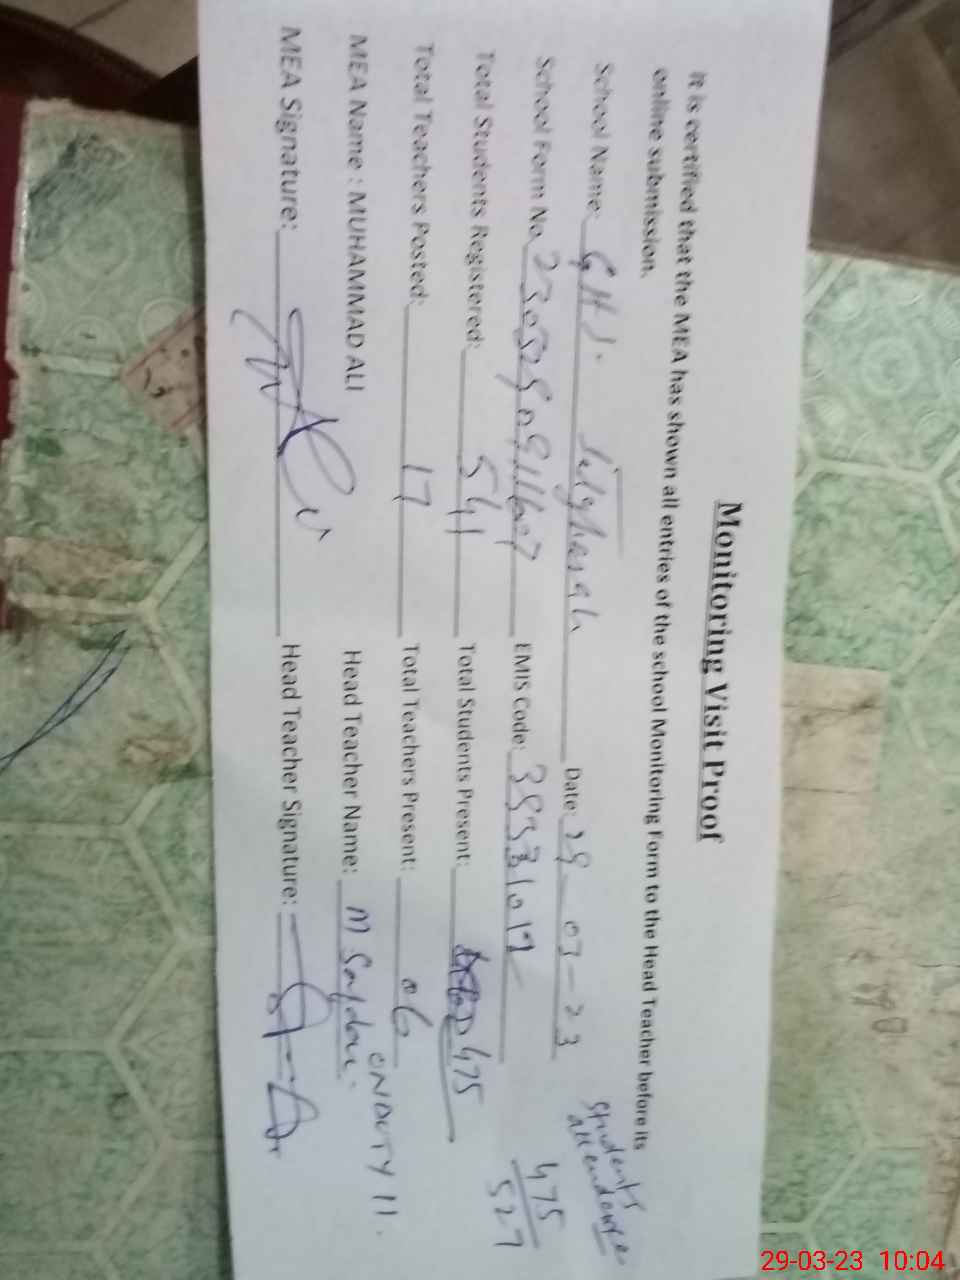 Monitoring Visit Proof
It is certified that the MEA has shown all entries of the school Monitoring Form to the Head Teacher before its
online submission.
School Name: Date: 29-03-23
School Form No. EMIS Code:
Total Students Registered: 541 Total Students Present: 475
Total Teachers Posted: 17 Total Teachers Present: 06
ON DUTY 11.
MEA Name : MUHAMMAD ALI Head Teacher Name: M
MEA Signature: Head Teacher Signature:
students
attendance
475
527
29-03-23 10:04